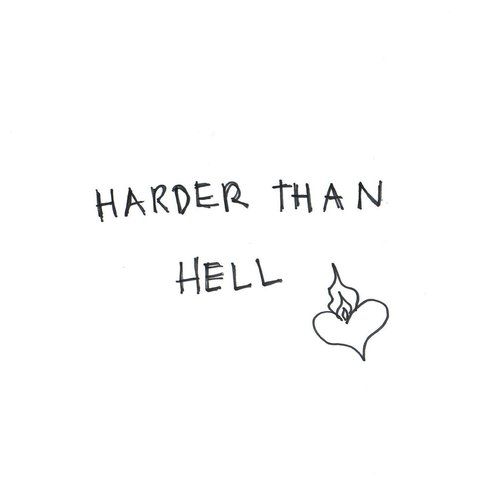 HARDER THAN
HELL